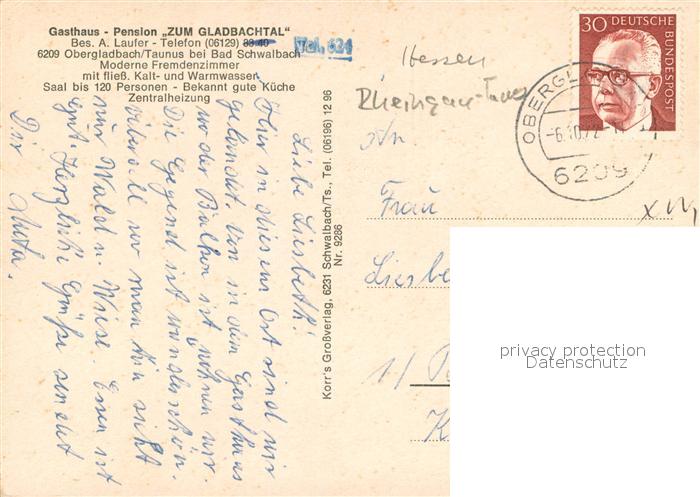 Gasthaus - Pension „ZUM GLADBACHTAL"
Bes. A. Laufer - Telefon (06129) 88 40 Tel. 624
6209 Obergladbach/Taunus bei Bad Schwalbach
Moderne Fremdenzimmer
mit fließ. Kalt- und Warmwasser
Saal bis 120 Personen - Bekannt gute Küche
Zentralheizung
Liebe Liesbeth!
Hier in diesem Ort sind wir
gelandet. Von in dem Gasthaus
wo der Balken ist wohnen wir.
Die Gegend ist wunderschön.
überall wo man hin sieht
nur Wald u. Wiese. Essen ist
gut. Herzliche Grüße sendet
Dir Meta.
Korr's Großverlag, 6231 Schwalbach/Ts., Tel. (06196) 12 96
Nr. 9286
Hessen
Rheingau-Taunus
An
Frau
Liesbe
1/
K
30 DEUTSCHE BUNDESPOST
OBERGL
-6.10.72-
6209
privacy protection
Datenschutz